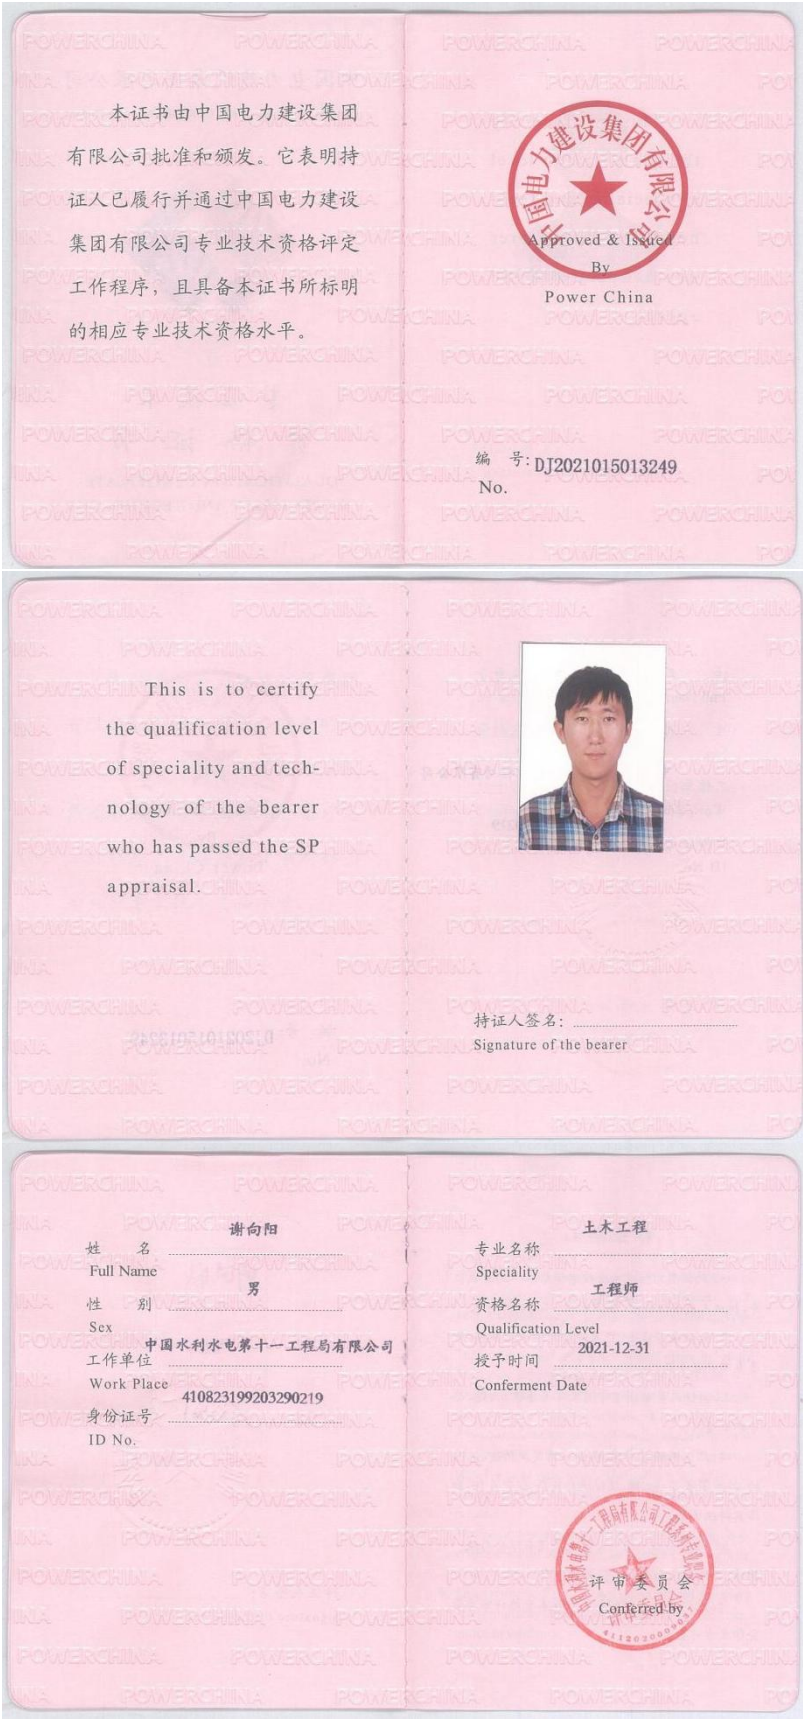 本证书由中国电力建设集团
有限公司批准和颁发。它表明持
证人已履行并通过中国电力建设
集团有限公司专业技术资格评定
工作程序，且具备本证书所标明
的相应专业技术资格水平。
中国电力建设集团有限公司
Approved & Issued
By
Power China
编 号: DJ2021015013249
No.
This is to certify
the qualification level
of speciality and tech-
nology of the bearer
who has passed the SP
appraisal.
持证人签名:
Signature of the bearer
姓 名 谢向阳
Full Name
性 别 男
Sex
工作单位 中国水利水电第十一工程局有限公司
Work Place
身份证号 410823199203290219
ID No.
专业名称 土木工程
Speciality
资格名称 工程师
Qualification Level
授予时间 2021-12-31
Conferment Date
中国水利水电第十一工程局有限公司工程系列专业职务
评审委员会
评审委员会
Conferred by
POWERCHINA